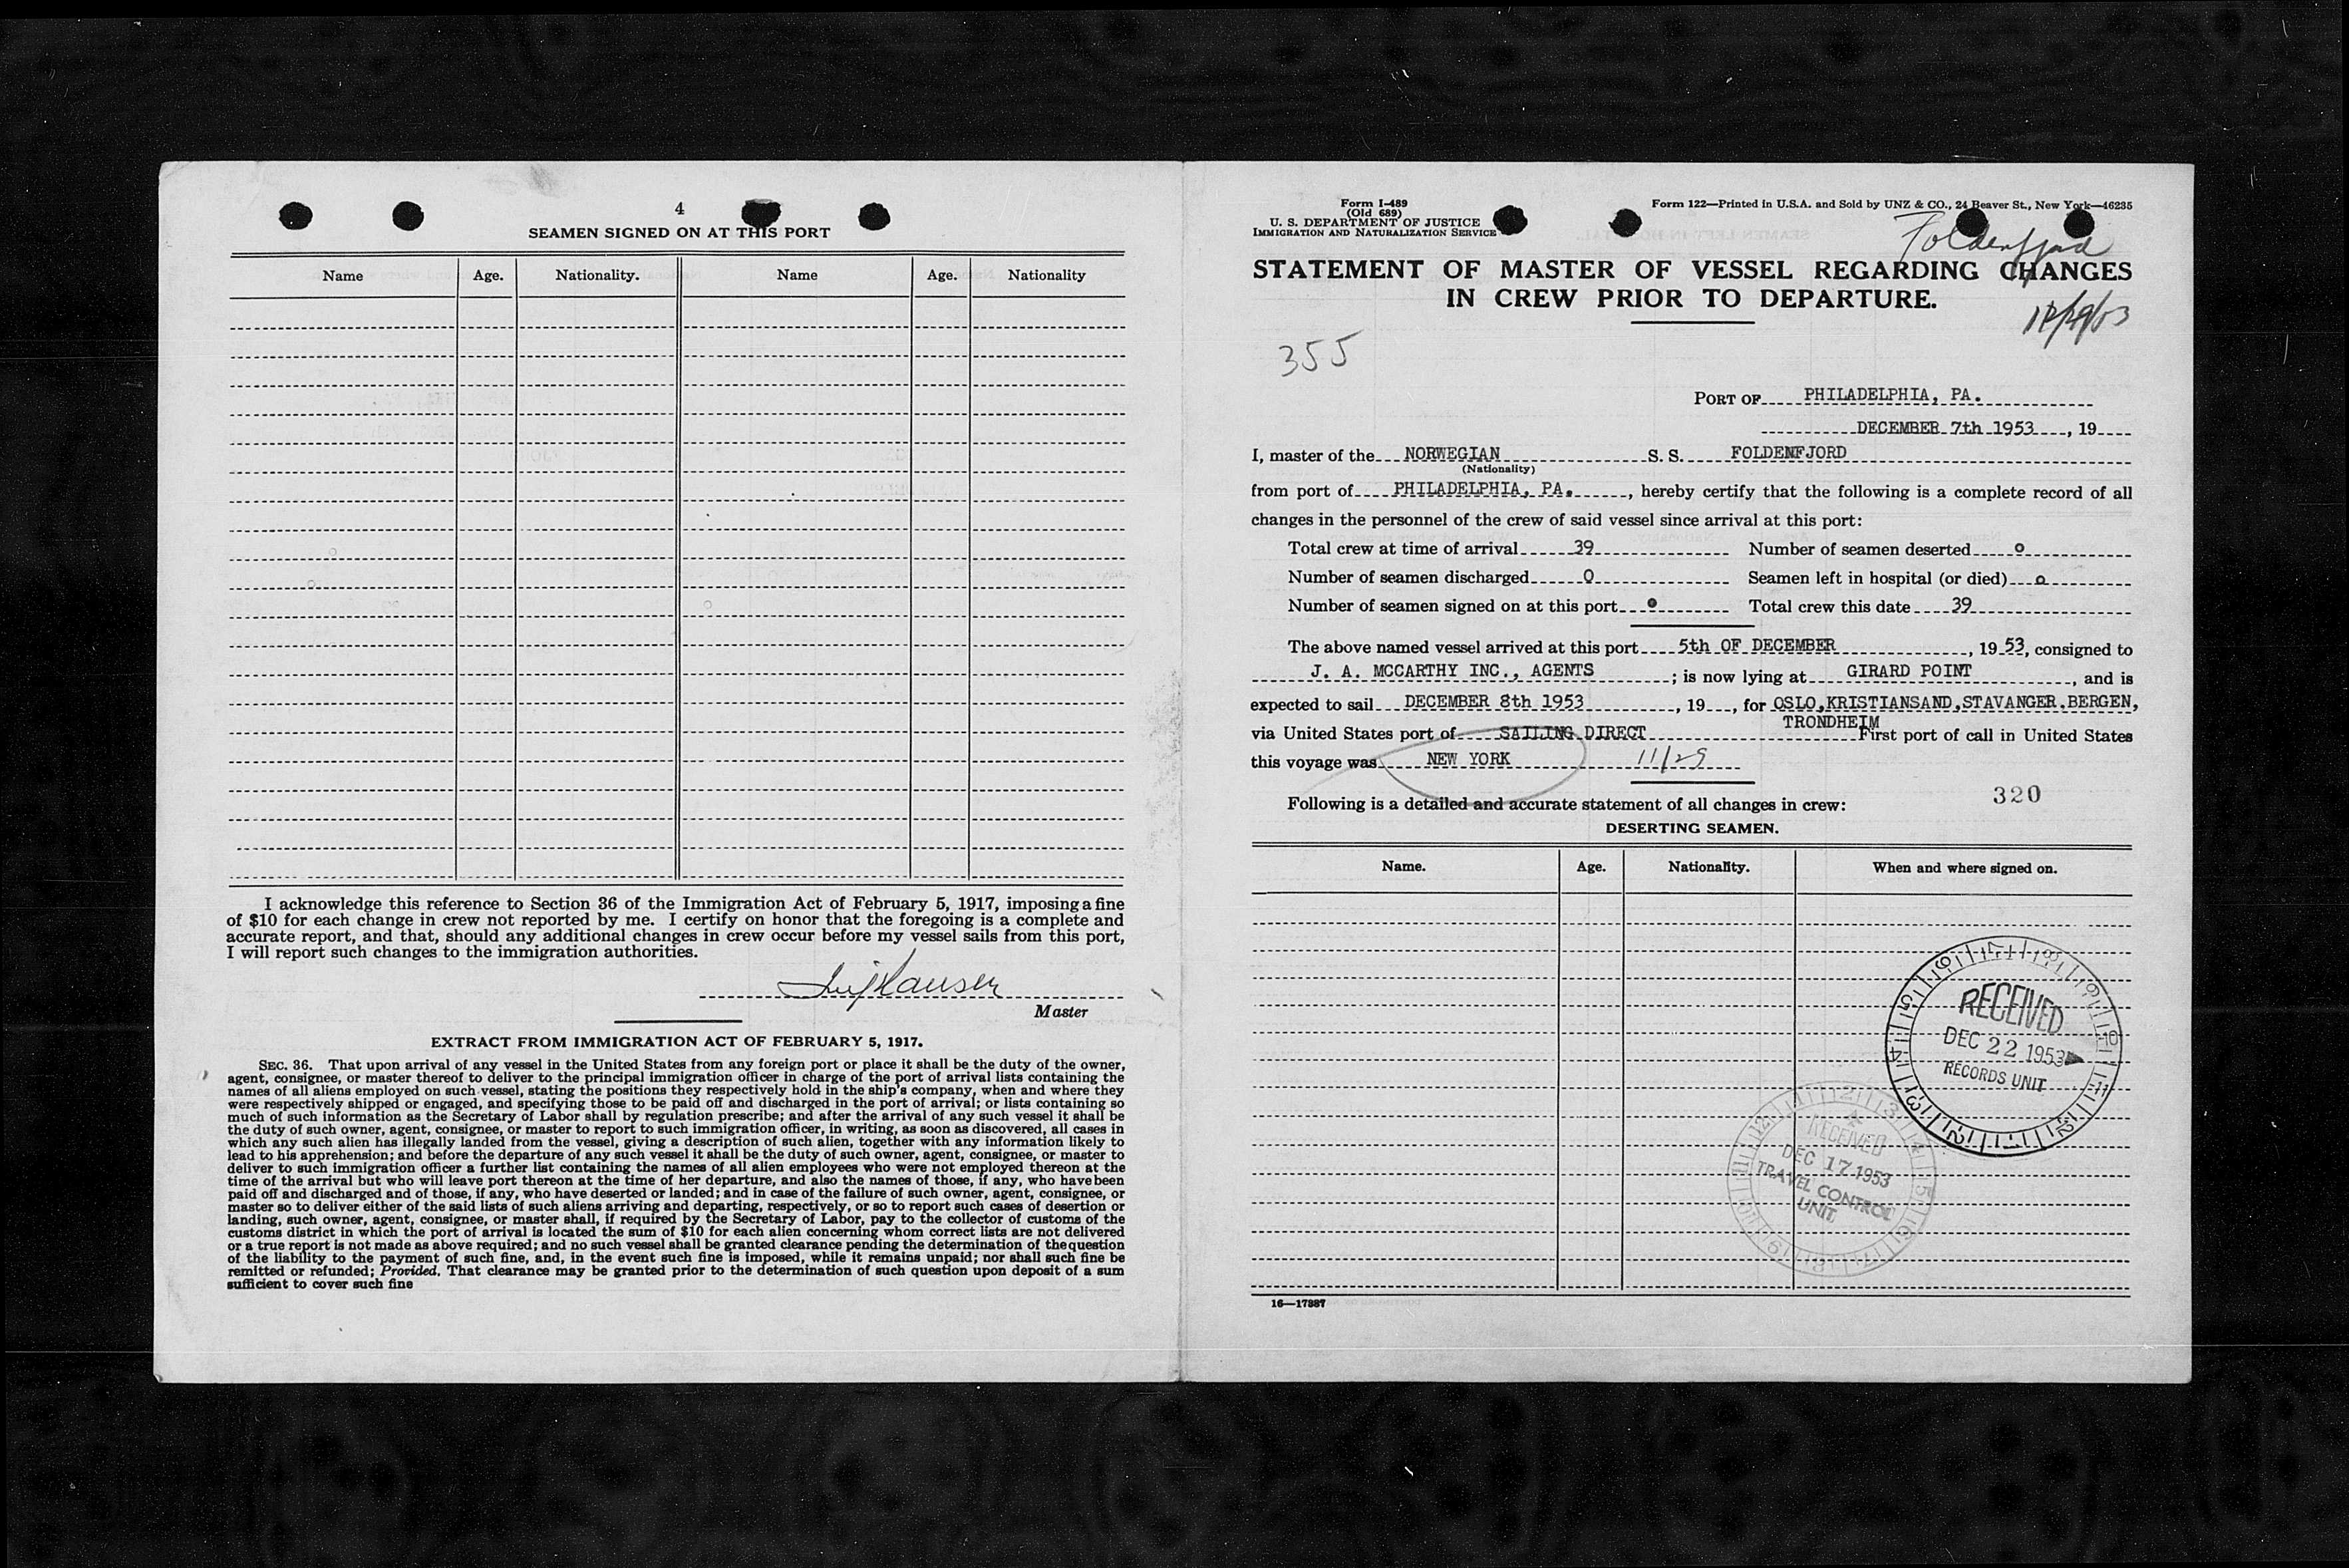 4
SEAMEN SIGNED ON AT THIS PORT
Name Age. Nationality. Name Age. Nationality
I acknowledge this reference to Section 36 of the Immigration Act of February 5, 1917, imposing a fine
of $10 for each change in crew not reported by me. I certify on honor that the foregoing is a complete and
accurate report, and that, should any additional changes in crew occur before my vessel sails from this port,
I will report such changes to the immigration authorities.
Hansen
Master
EXTRACT FROM IMMIGRATION ACT OF FEBRUARY 5, 1917.
SEC. 36. That upon arrival of any vessel in the United States from any foreign port or place it shall be the duty of the owner,
agent, consignee, or master thereof to deliver to the principal immigration officer in charge of the port of arrival lists containing the
names of all aliens employed on such vessel, stating the positions they respectively hold in the ship's company, when and where they
were respectively shipped or engaged, and specifying those to be paid off and discharged in the port of arrival; or lists containing so
much of such information as the Secretary of Labor shall by regulation prescribe; and after the arrival of any such vessel it shall be
the duty of such owner, agent, consignee, or master to report to such immigration officer, in writing, as soon as discovered, all cases in
which any such alien has illegally landed from the vessel, giving a description of such alien, together with any information likely to
lead to his apprehension; and before the departure of any such vessel it shall be the duty of such owner, agent, consignee, or master to
deliver to such immigration officer a further list containing the names of all alien employees who were not employed thereon at the
time of the arrival but who will leave port thereon at the time of her departure, and also the names of those, if any, who have been
paid off and discharged and of those, if any, who have deserted or landed; and in case of the failure of such owner, agent, consignee, or
master so to deliver either of the said lists of such aliens arriving and departing, respectively, or so to report such cases of desertion or
landing, such owner, agent, consignee, or master shall, if required by the Secretary of Labor, pay to the collector of customs of the
customs district in which the port of arrival is located the sum of $10 for each alien concerning whom correct lists are not delivered
or a true report is not made as above required; and no such vessel shall be granted clearance pending the determination of the question
of the liability to the payment of such fine, and, in the event such fine is imposed, while it remains unpaid; nor shall such fine be
remitted or refunded; Provided, That clearance may be granted prior to the determination of such question upon deposit of a sum
sufficient to cover such fine
Form I-489
(Old 689)
U. S. DEPARTMENT OF JUSTICE
IMMIGRATION AND NATURALIZATION SERVICE
Form 122—Printed in U.S.A. and Sold by UNZ & CO., 24 Beaver St., New York—46235
Foldenfjord
STATEMENT OF MASTER OF VESSEL REGARDING CHANGES
IN CREW PRIOR TO DEPARTURE.
355
PORT OF PHILADELPHIA, PA.
DECEMBER 7th 1953, 19
I, master of the NORWEGIAN S. S. FOLDENFJORD
(Nationality)
from port of PHILADELPHIA, PA., hereby certify that the following is a complete record of all
changes in the personnel of the crew of said vessel since arrival at this port:
Total crew at time of arrival 39 Number of seamen deserted o
Number of seamen discharged 0 Seamen left in hospital (or died) o
Number of seamen signed on at this port o Total crew this date 39
The above named vessel arrived at this port 5th OF DECEMBER, 19 53, consigned to
J. A. MCCARTHY INC., AGENTS; is now lying at GIRARD POINT, and is
expected to sail DECEMBER 8th 1953, 19, for OSLO,KRISTIANSAND,STAVANGER,BERGEN,
TRONDHEIM
via United States port of SAILING DIRECT First port of call in United States
this voyage was NEW YORK 11/29
Following is a detailed and accurate statement of all changes in crew:
320
DESERTING SEAMEN.
Name. Age. Nationality. When and where signed on.
RECEIVED
DEC 22 1953
RECORDS UNIT
RECEIVED
DEC 17 1953
TRAVEL CONTROL
UNIT
16—17887